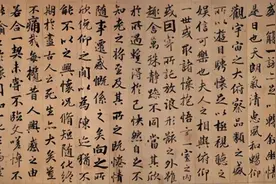 是日也天朗氣清惠風和暢仰
觀宇宙之大俯察品類之盛
所以遊目騁懷足以極視聽之
娛信可樂也夫人之相與俯仰
一世或取諸懷抱悟言一室之內
或因寄所託放浪形骸之外雖
趣舍萬殊靜躁不同當其欣
於所遇暫得於己快然自足不
知老之將至及其所之既倦情
隨事遷感慨係之矣向之所
欣俛仰之間以為陳迹猶不
能不以之興懷況脩短隨化終
期於盡古人云死生亦大矣豈
不痛哉每攬昔人興感之由
若合一契未嘗不臨文嗟悼不